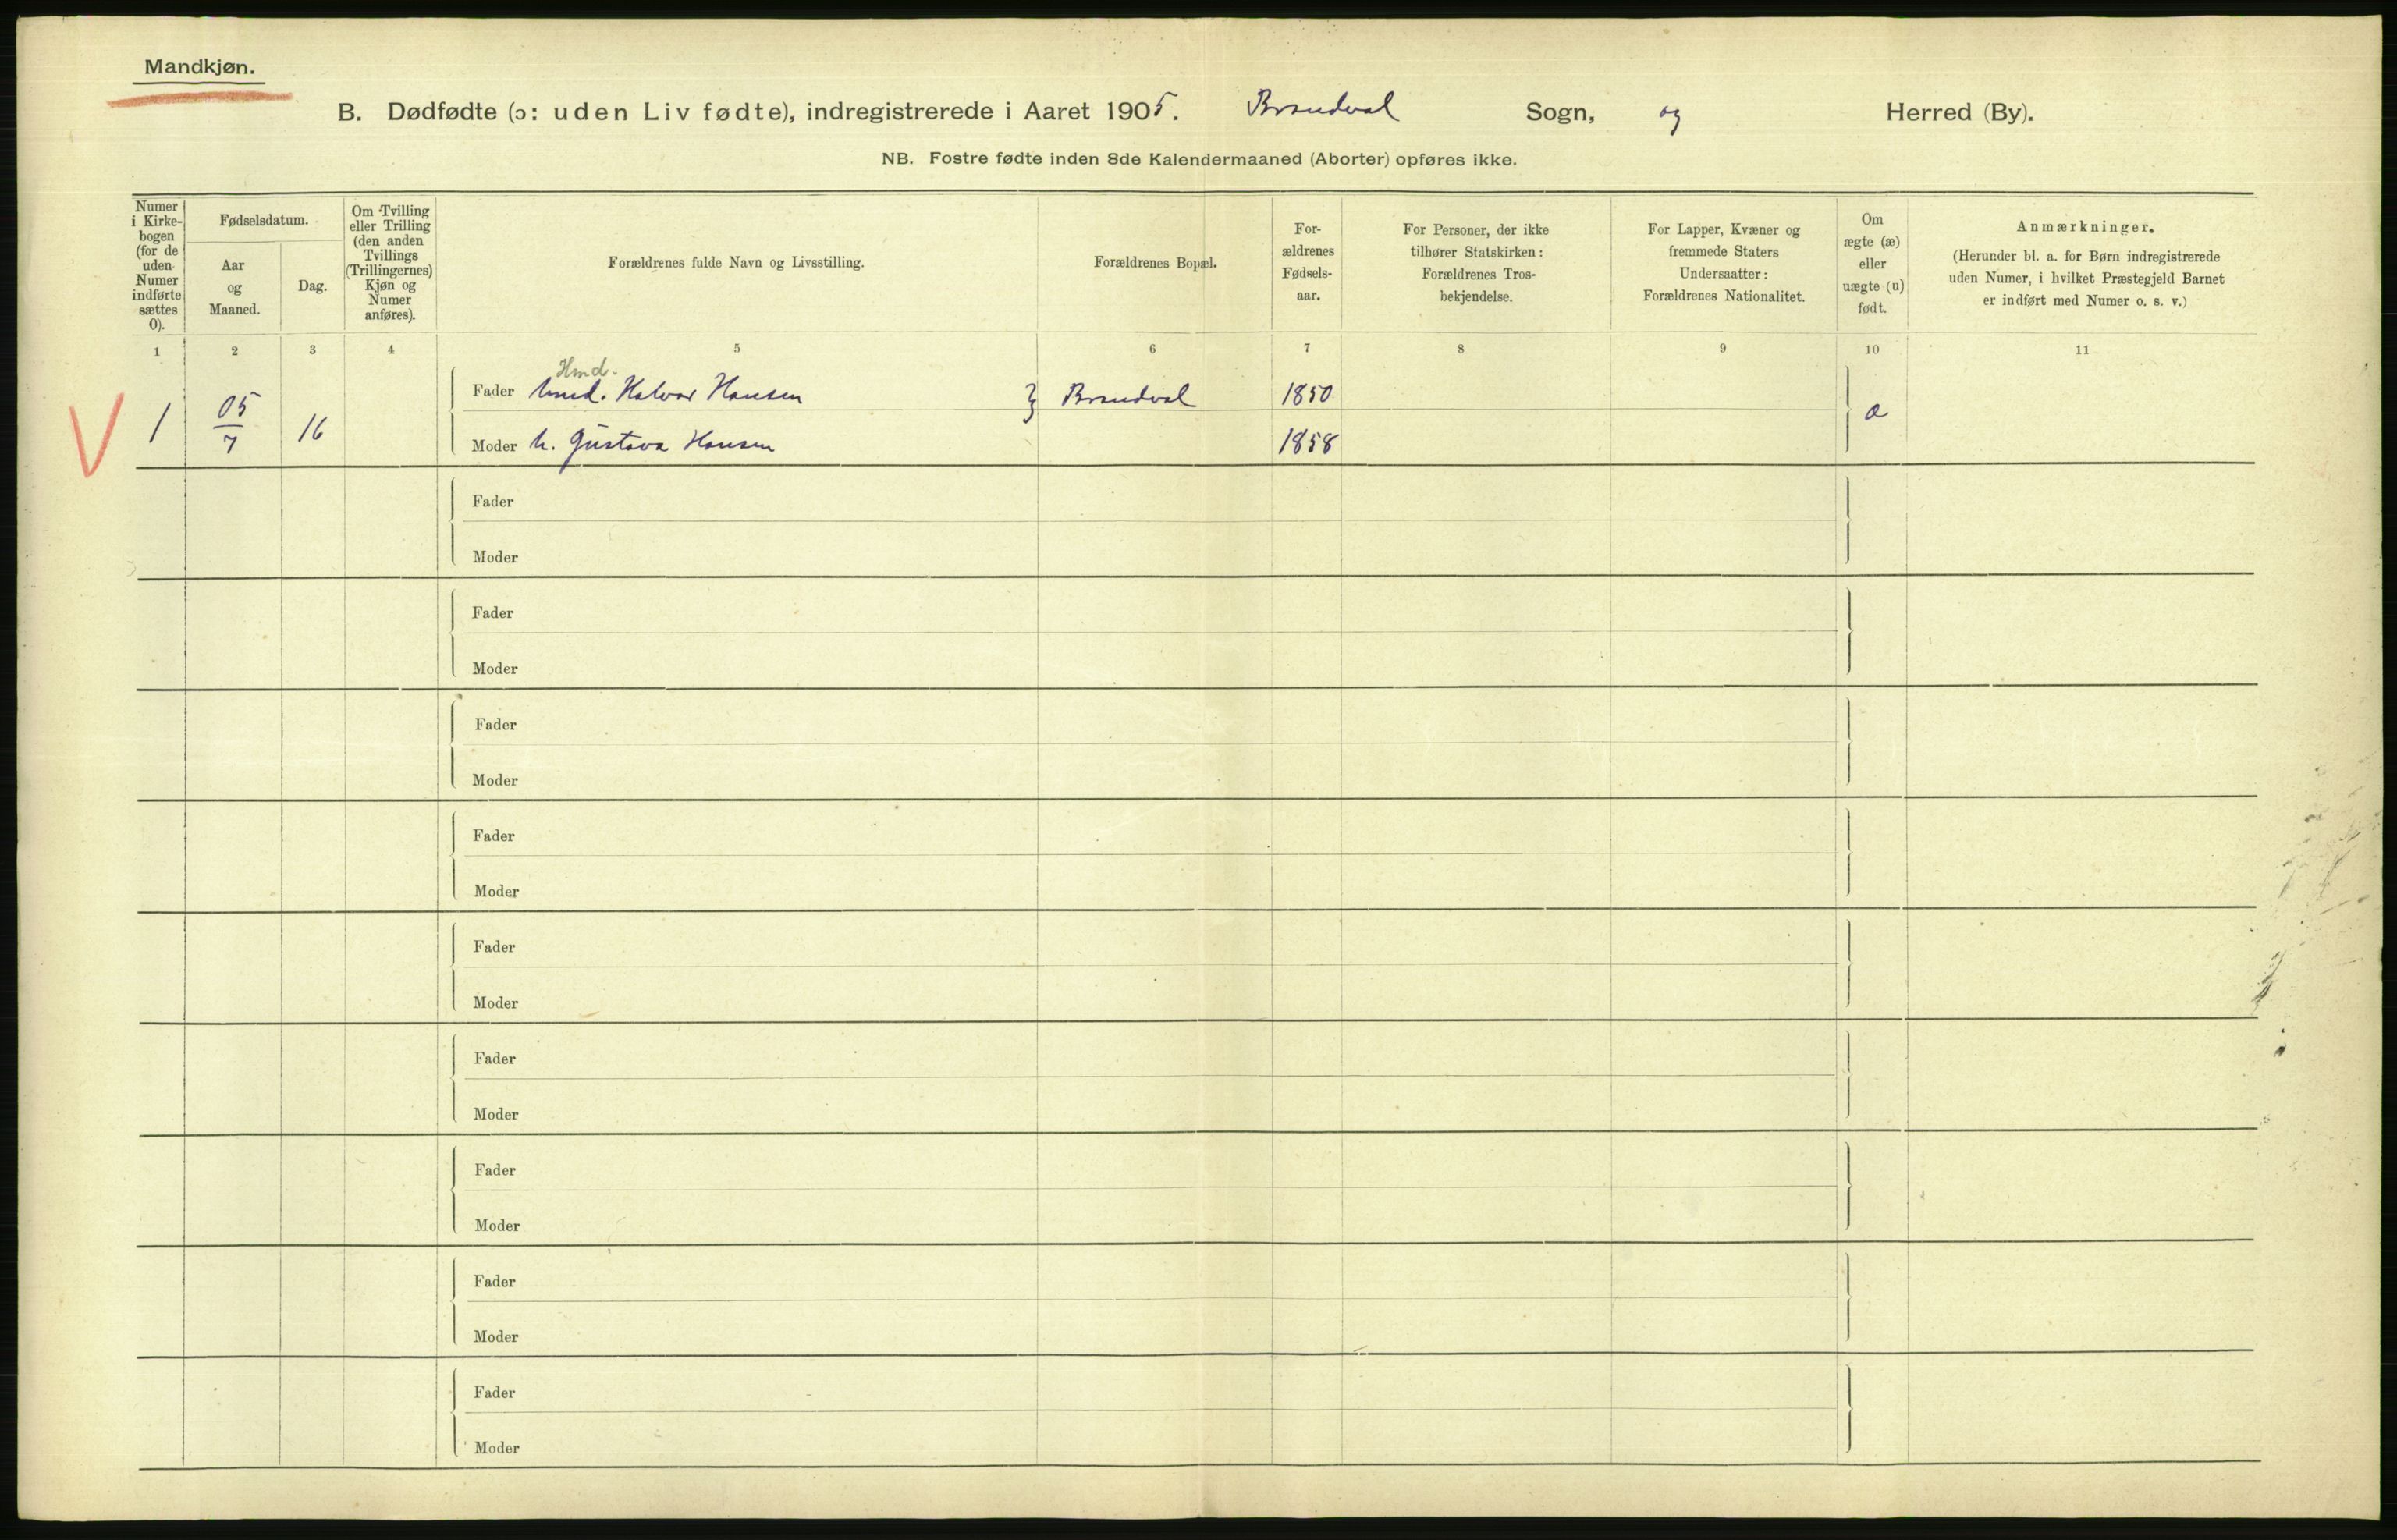 Mandkjøn.
B. Dødfødte (ɔ: uden Liv fødte), indregistrerede i Aaret 1905. Brandval Sogn, og Herred (By).
NB. Fostre fødte inden 8de Kalendermaaned (Aborter) opføres ikke.
Numer i Kirke-bogen (for de uden Numer indførte sættes 0).
Fødselsdatum.
Aar og Maaned.
Dag.
Om Tvilling eller Trilling (den anden Tvillings (Trillingernes) Kjøn og Numer anføres).
Forældrenes fulde Navn og Livsstilling.
Forældrenes Bopæl.
For-ældrenes Fødsels-aar.
For Personer, der ikke tilhører Statskirken: Forældrenes Tros-bekjendelse.
For Lapper, Kvæner og fremmede Staters Undersaatter: Forældrenes Nationalitet.
Om ægte (æ) eller uægte (u) født.
Anmærkninger.
(Herunder bl. a. for Børn indregistrerede uden Numer, i hvilket Præstegjeld Barnet er indført med Numer o. s. v.)
1 2 3 4 5 6 7 8 9 10 11
Hmd.
V 1 05/7 16 Fader Halvor Hansen } Brandval 1850 æ
Moder h. Gustava Hansen 1858
Fader
Moder
Fader
Moder
Fader
Moder
Fader
Moder
Fader
Moder
Fader
Moder
Fader
Moder
Fader
Moder
Fader
Moder